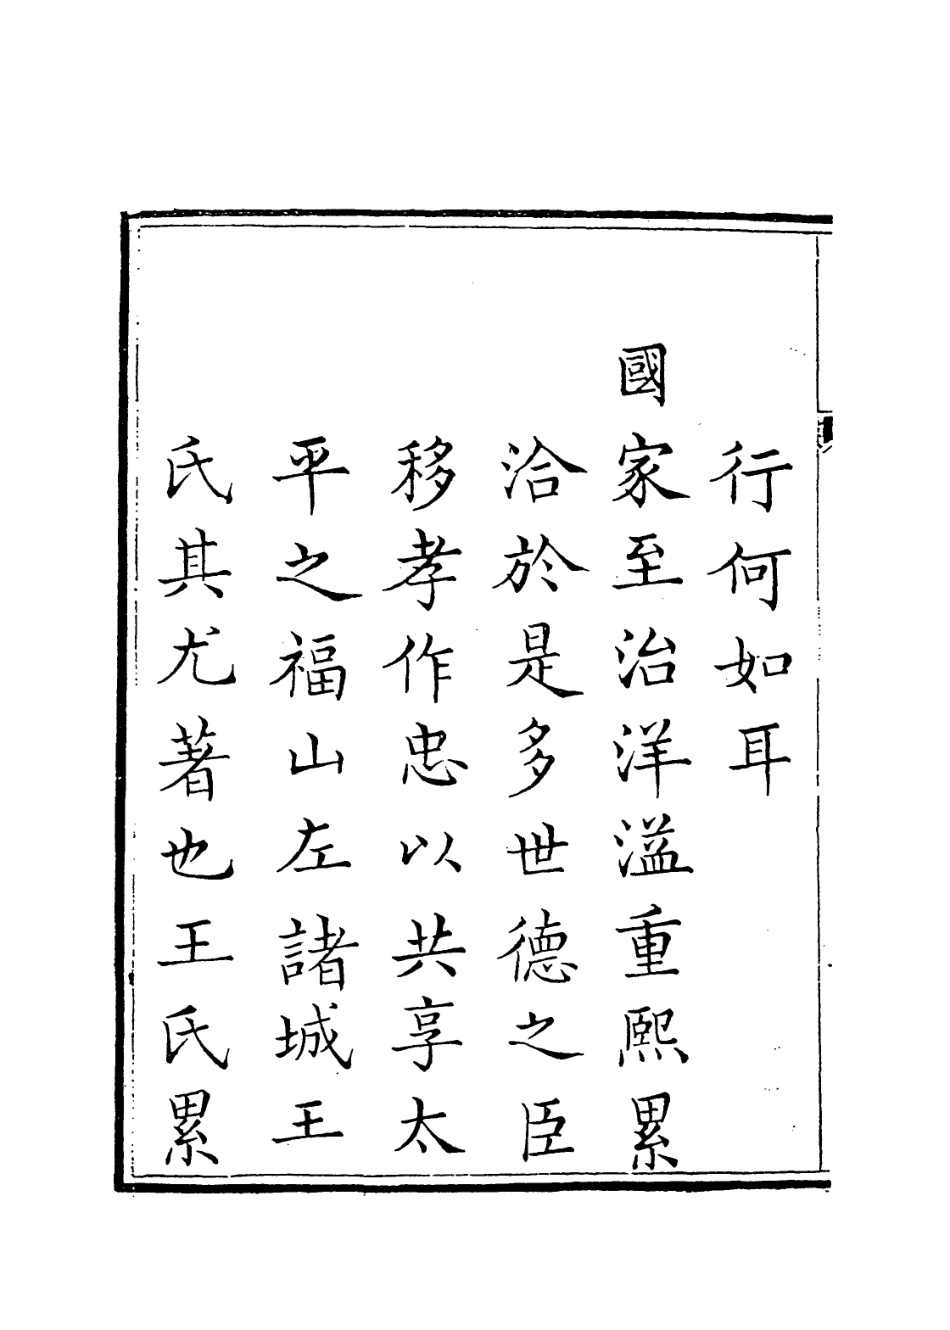 行何如耳
國家至治洋溢重熙累
洽於是多世德之臣
移孝作忠以共享太
平之福山左諸城王
氏其尤著也王氏累